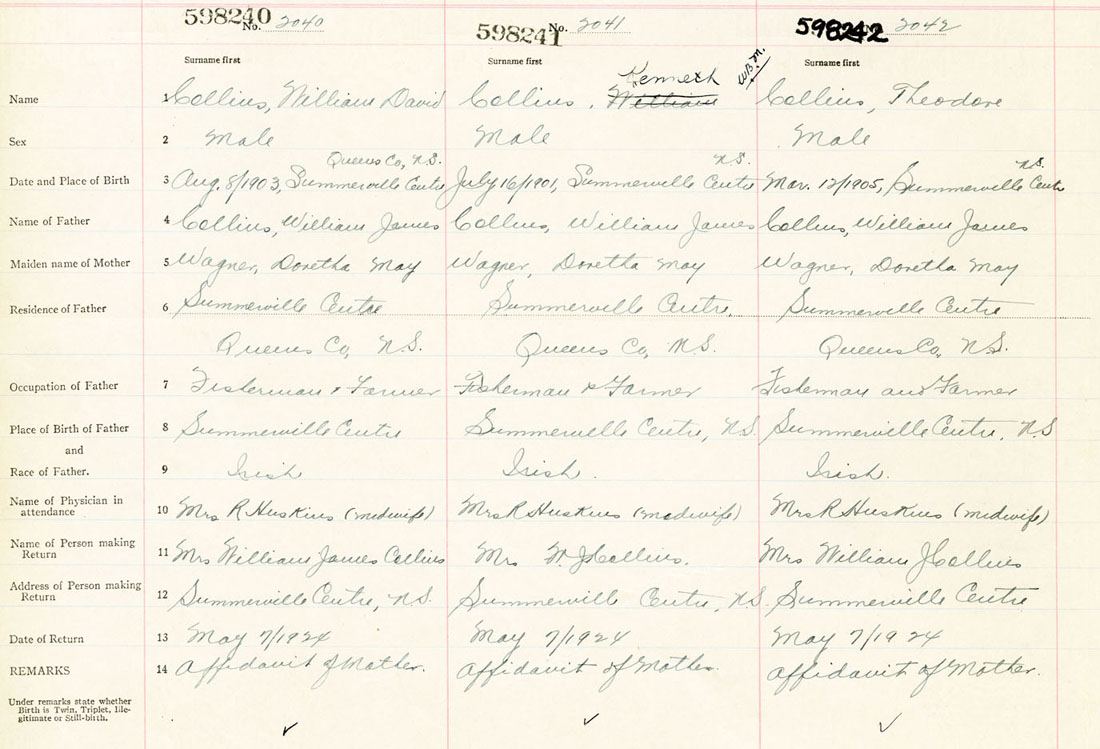 598240 No. 2040
598241 No. 2041
598242 2042
Surname first Surname first Surname first
W.B.M.
Kenneth
Name 1 Collins, William David Collins, William Collins, Theodore
Sex 2 Male Male Male
Queens Co, N.S. N.S. N.S.
Date and Place of Birth 3 Aug. 8/1903, Summerville Centre July 16/1901, Summerville Centre Mar. 12/1905, Summerville Centre
Name of Father 4 Collins, William James Collins, William James Collins, William James
Maiden name of Mother 5 Wagner, Doretha May Wagner, Doretha May Wagner, Doretha May
Residence of Father 6 Summerville Centre Summerville Centre, Summerville Centre
Queens Co, N.S. Queens Co, N.S. Queens Co, N.S.
Occupation of Father 7 Fisherman & Farmer Fisherman & Farmer Fisherman and Farmer
Place of Birth of Father 8 Summerville Centre Summerville Centre, N.S. Summerville Centre, N.S
and
Race of Father. 9 Irish Irish. Irish.
Name of Physician in
attendance 10 Mrs R Huskins (midwife) Mrs R Huskins (midwife) Mrs R Huskins (midwife)
Name of Person making
Return 11 Mrs William James Collins Mrs W. J Collins. Mrs William J Collins
Address of Person making
Return 12 Summerville Centre, N.S. Summerville Centre, N.S. Summerville Centre
Date of Return 13 May 7/1924 May 7/1924 May 7/1924
REMARKS 14 Affidavit of Mother. Affidavit of Mother. Affidavit of Mother.
Under remarks state whether
Birth is Twin, Triplet, Ille-
gitimate or Still-birth.